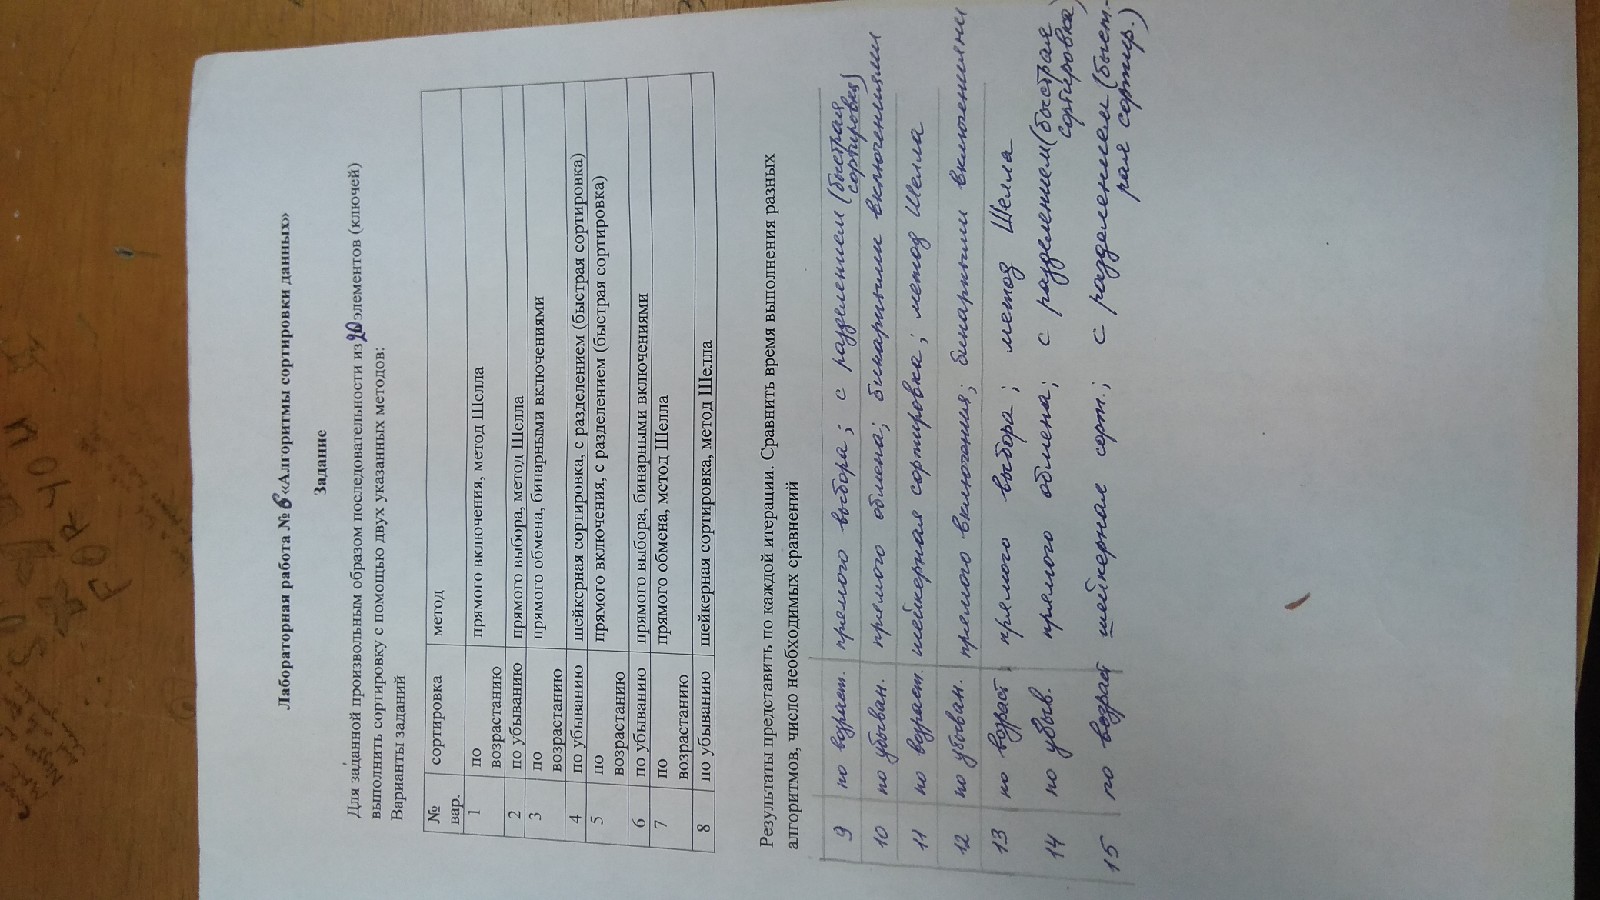 FOR YOU
Лабораторная работа № 6 «Алгоритмы сортировки данных»
Задание
Для заданной произвольным образом последовательности из 20 элементов (ключей)
выполнить сортировку с помощью двух указанных методов:
Варианты заданий
№ вар. сортировка метод
1 по возрастанию прямого включения, метод Шелла
2 по убыванию прямого выбора, метод Шелла
3 по возрастанию прямого обмена, бинарными включениями
4 по убыванию шейкерная сортировка, с разделением (быстрая сортировка)
5 по возрастанию прямого включения, с разделением (быстрая сортировка)
6 по убыванию прямого выбора, бинарными включениями
7 по возрастанию прямого обмена, метод Шелла
8 по убыванию шейкерная сортировка, метод Шелла
Результаты представить по каждой итерации. Сравнить время выполнения разных
алгоритмов, число необходимых сравнений
9 по возраст. прямого выбора; с разделением (быстрая
сортировка)
10 по убыван. прямого обмена; бинарными включениями
11 по возраст. шейкерная сортировка; метод Шелла
12 по убыван. прямого включения; бинарными включениями
13 по возраст. прямого выбора; метод Шелла
14 по убыв. прямого обмена; с разделением (быстрая
сортировка)
15 по возраст шейкерная сорт.; с разделением (быст-
рая сортир.)